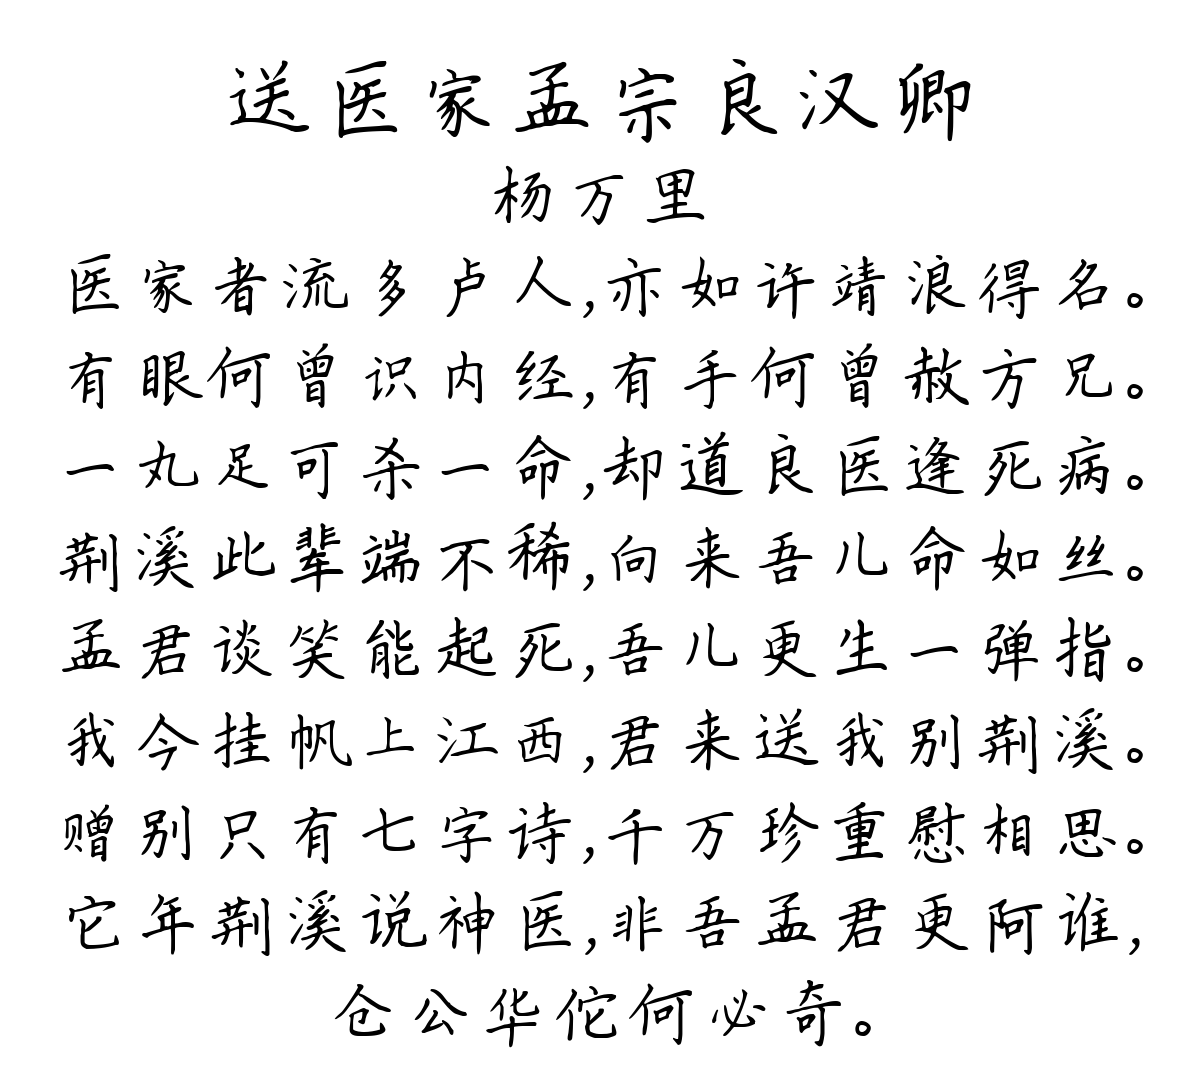 送医家孟宗良汉卿
杨万里
医家者流多卢人,亦如许靖浪得名。
有眼何曾识内经,有手何曾赦方兄。
一丸足可杀一命,却道良医逢死病。
荆溪此辈端不稀,向来吾儿命如丝。
孟君谈笑能起死,吾儿更生一弹指。
我今挂帆上江西,君来送我别荆溪。
赠别只有七字诗,千万珍重慰相思。
它年荆溪说神医,非吾孟君更阿谁,
仓公华佗何必奇。